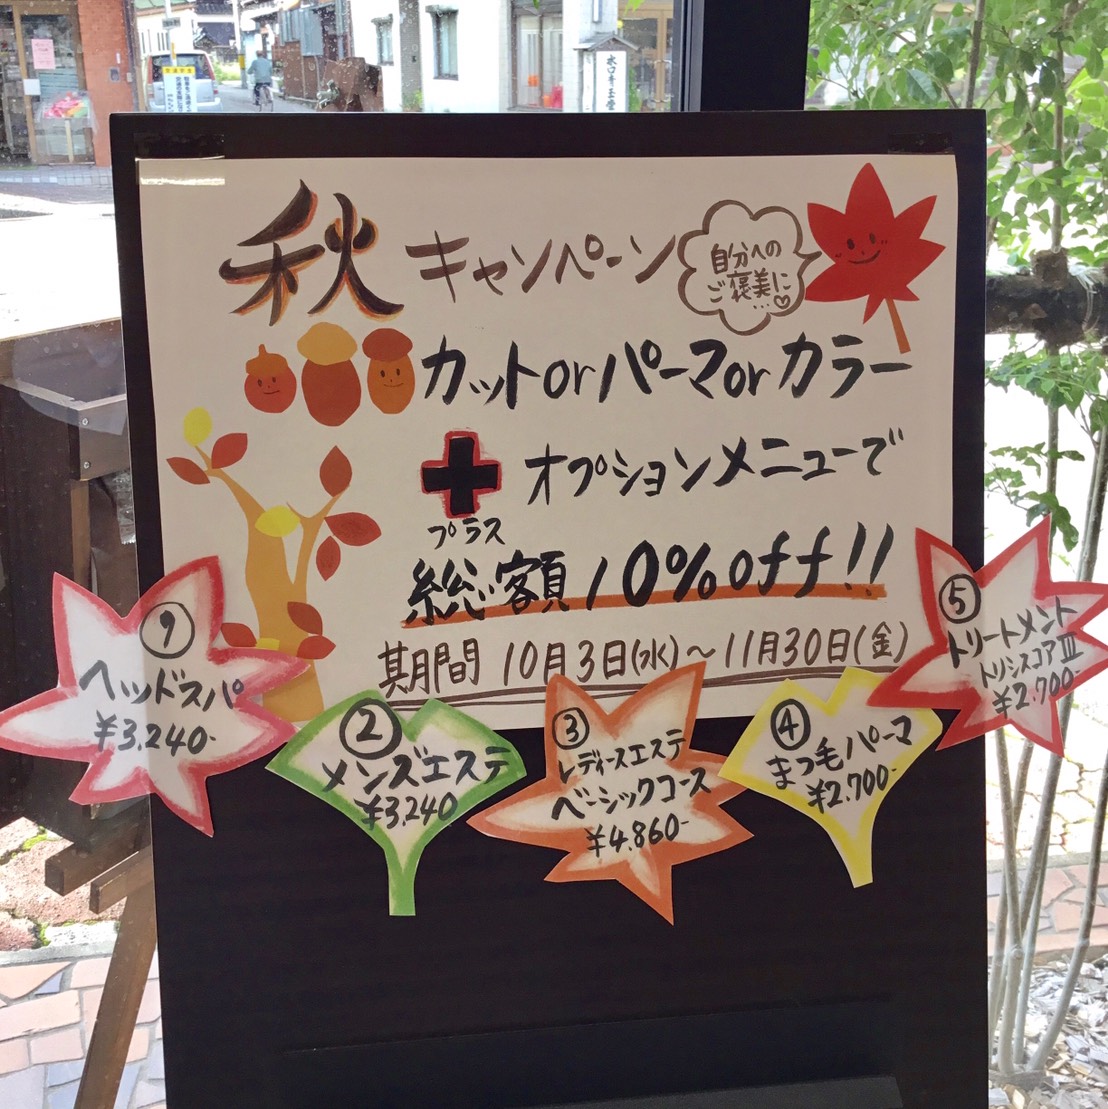 秋キャンペーン
自分への
ご褒美に…♡
カットorパーマorカラー
＋オプションメニューで
プラス
総額10%off!!
期間 10月3日(水)～11月30日(金)
①
ヘッドスパ
¥3,240-
②
メンズエステ
¥3,240
③
レディースエステ
ベーシックコース
¥4,860-
④
まつ毛パーマ
¥2,700-
⑤
トリートメント
トリシスコアIII
¥2,700